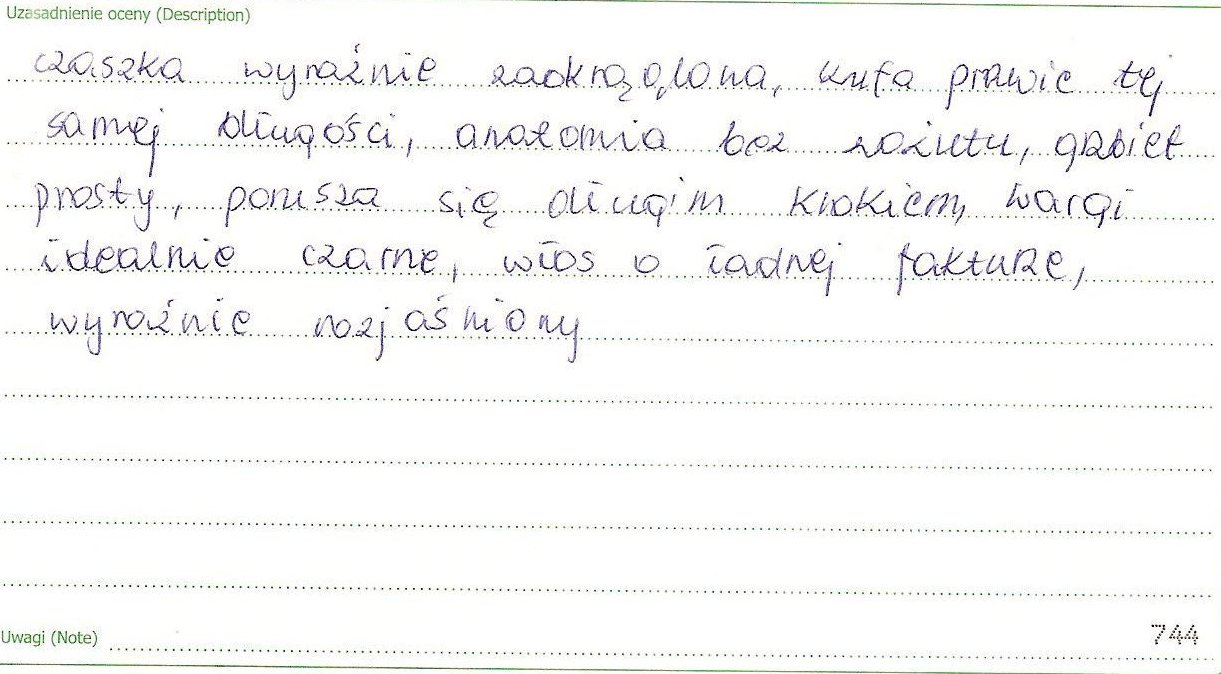 Uzasadnienie oceny (Description)
czaszka wyraźnie zaokrąglona, kufa prawie tej
samej długości, anatomia bez zażutu, grzbiet
prosty, porusza się długim krokiem, wargi
idealnie czarne, włos o ładnej fakturze,
wyraźnie rozjaśniony
Uwagi (Note)
744